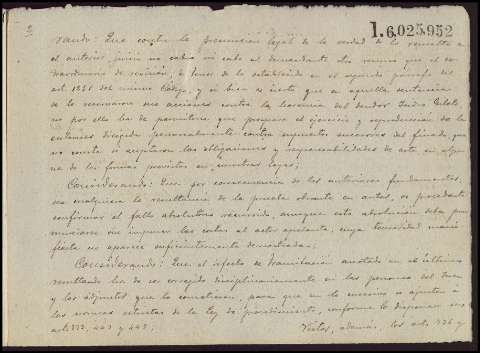 1.6.025.952
rando: Que contra la presuncion legal de la verdad de lo resuelto en
el anterior juicio no cabia en caso al demandante otro recurso que el ex-
traordinario de revisión, á tenor de lo establecido en el segundo parrafo del
art. 1251 del mismo Código, y si bien es cierto que en aquella sentencia
se le reservaron sus acciones contra la herencia del deudor
no por ello ha de permitirse que prospere el ejercicio y reproduccion de la
entonces dirigida personalmente contra supuestos sucesores del finado, que
no consta si aceptaron las obligaciones y responsabilidades de este en algu-
na de las formas previstas en nuestras leyes;
Considerando: Que por consecuencia de los anteriores fundamentos,
sea cualquiera la resultancia de la prueba obrante en autos, es procedente
confirmar el fallo absolutorio recurrido, aunque esta absolución deba pro-
nunciarse sin imponer las costas al actor apelante, cuya temeridad mani-
fiesta no aparece suficientemente demostrada;
Considerando: Que el defecto de tramitación anotado en el último
resultando ha de ser corregido disciplinariamente en las personas del Juez
y los adjuntos que lo cometieron, para que en lo sucesivo se ajusten á
las normas estrictas de la ley de procedimiento, conforme lo disponen sus
arts. 372, 443 y 449;
Vistos, además, los arts. 336 y